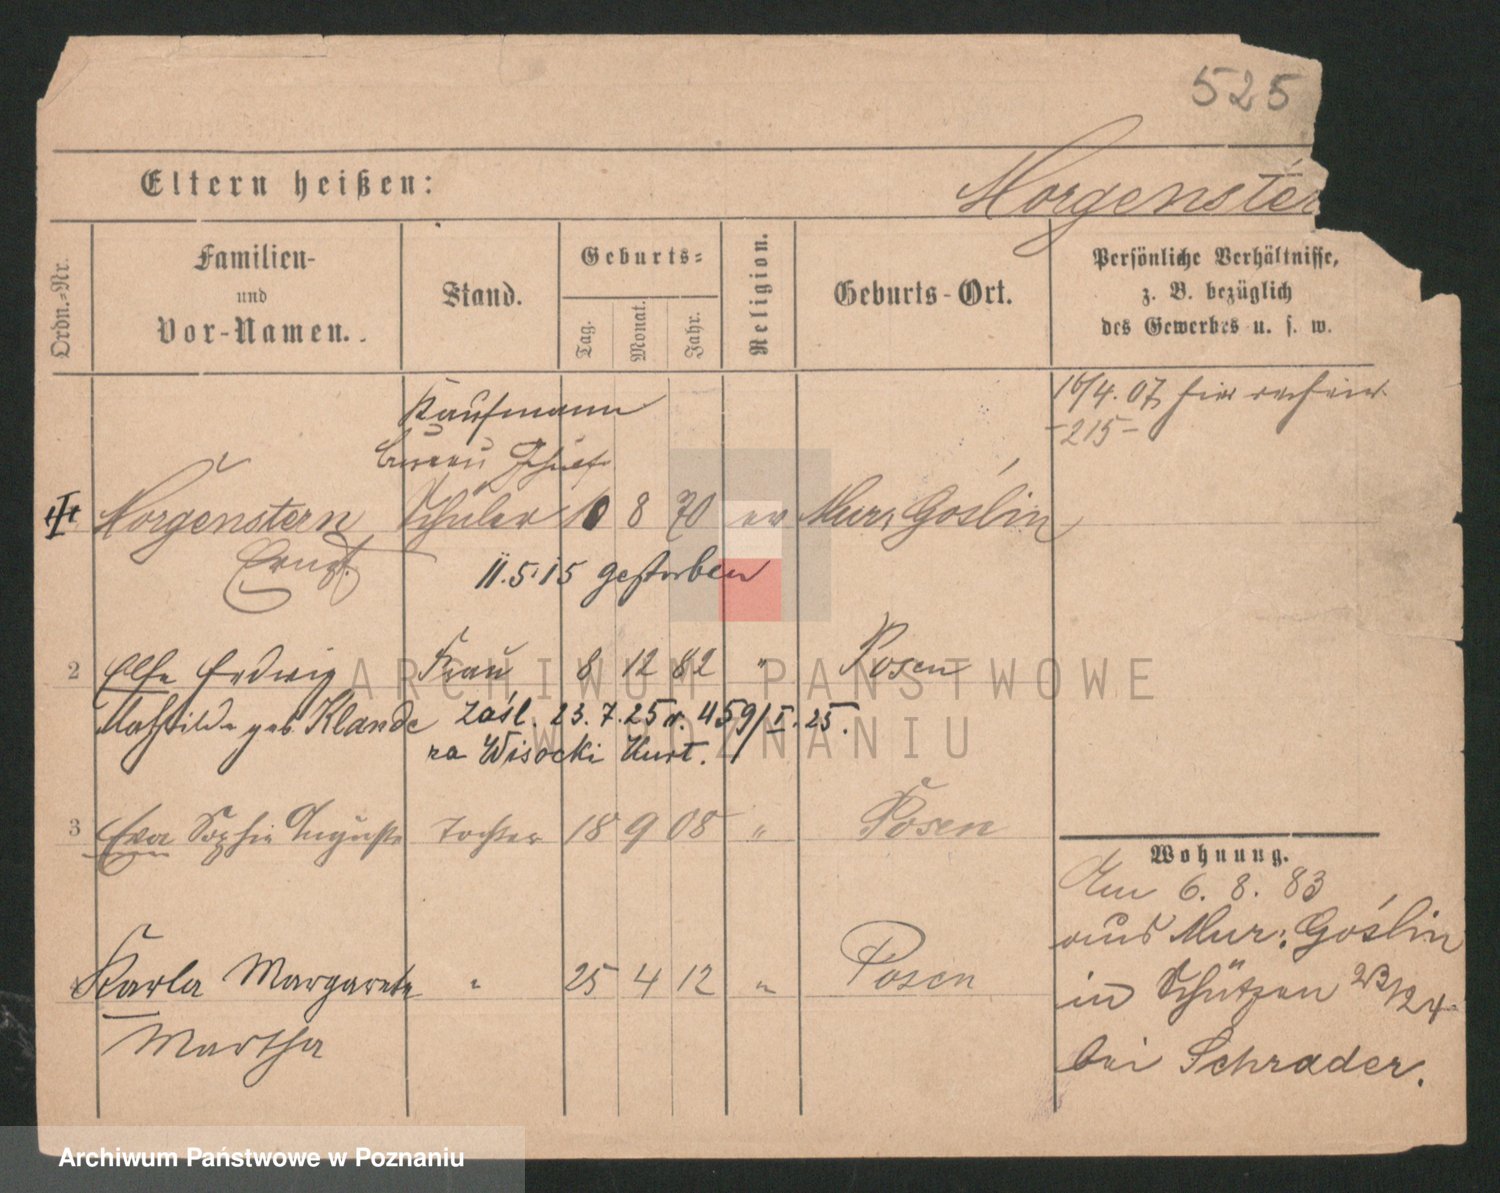 525
Eltern heißen:
Morgenster
Ordn.-Nr.
Familien-
und
Vor-Namen.
Stand.
Geburts-
Tag.
Monat.
Jahr.
Religion.
Geburts-Ort.
Persönliche Verhältnisse,
z. B. bezüglich
des Gewerbes u. s. w.
16/4. 07, hier
-215-
Kaufmann
Bureau
Morgenstern Schüler 10 8 70 ev Mur. Goślin
Ernst.
11.5.15 gestorben
2 Else Hedwig Frau 8 12 82 " Posen
Mathilde geb. Klande
zaśl. 23.7.25 r. 459/I.25.
za Wisocki Kurt.
3 Eva Sophie Auguste Tochter 18 9 08 " Posen
Karla Margarete " 25 4 12 " Posen
Martha
Wohnung.
Am 6. 8. 83
aus Mur. Goślin
in Schützen 23/24
bei Schrader.
ARCHIWUM PAŃSTWOWE
W POZNANIU
Archiwum Państwowe w Poznaniu